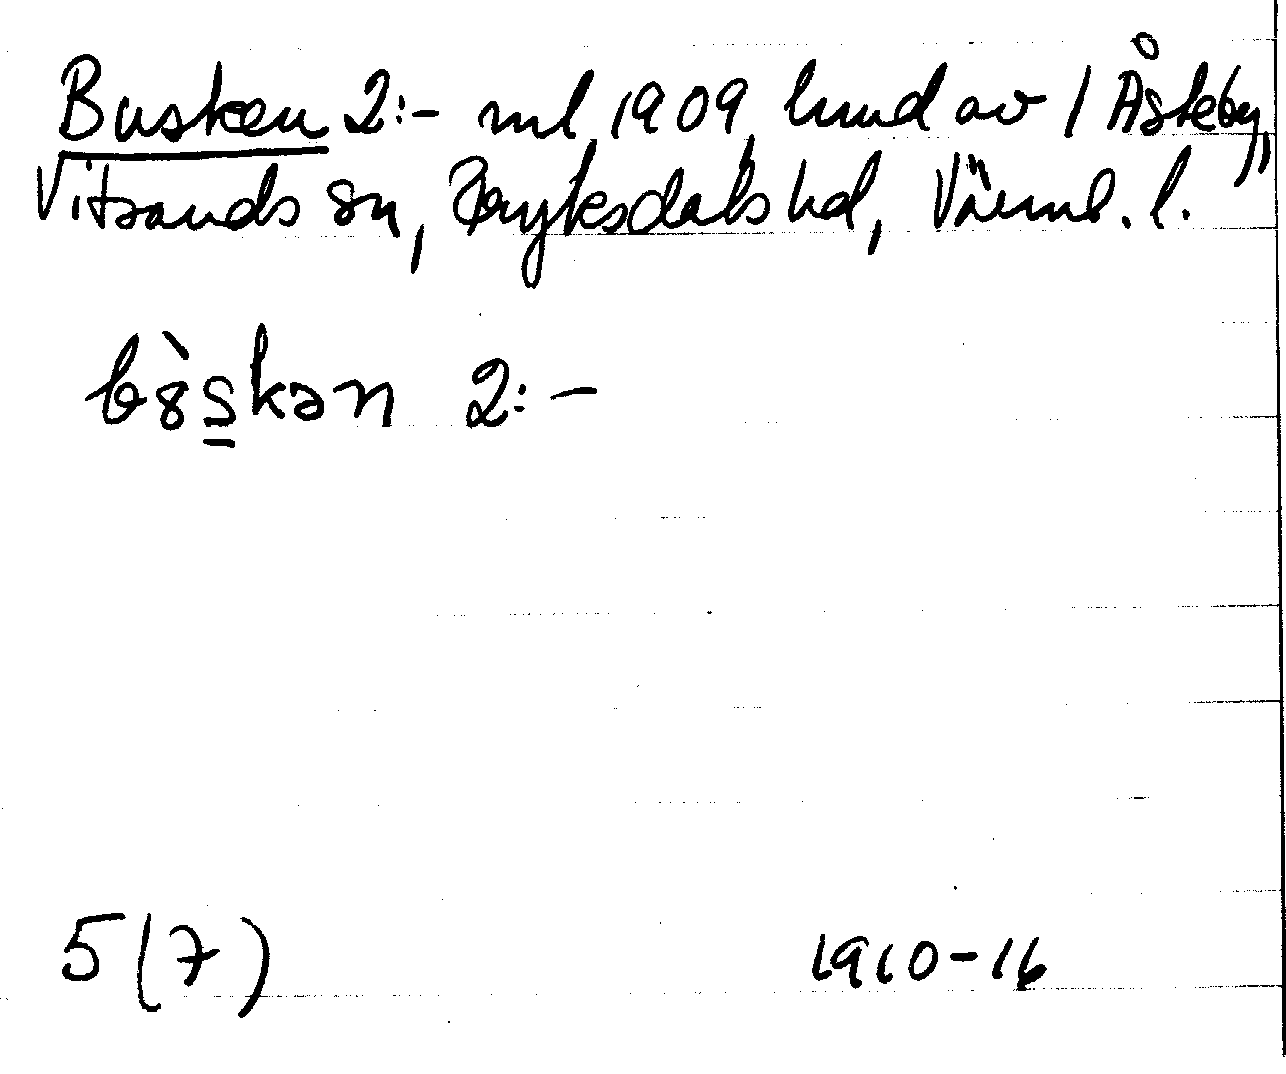 Busken 2:- ml 1909, lund av 1 Åsteby,
Vitsands sn, Fryksdals hd, Värml. l.
bɞ̀s̲kən 2:-
5(7) 1910-16